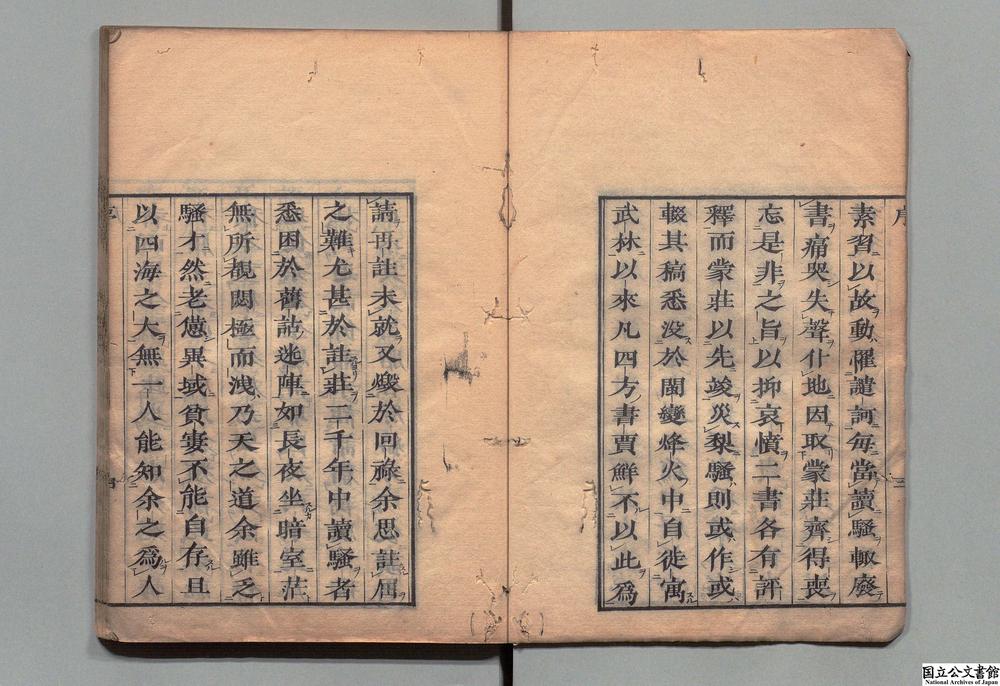 素習以故動罹譴訶每當讀騷輙廢
書痛哭失聲仆地因取蒙莊齊得喪
忘是非之旨以抑哀憤二書各有評
釋而蒙莊以先竣災梨騷則或作或
輟其稿悉没於閩變烽火中自徙寓
武林以來凡四方書賈鮮不以此爲
請再註未就又燬於回祿余思註屈
之難尤甚於註莊二千年中讀騷者
悉困於舊詁迷陣如長夜坐暗室茫
無所覩閟極而洩乃天之道余雖乏
騷才然老憊異域貧窶不能自存且
以四海之大無一人能知余之爲人
国立公文書館
National Archives of Japan